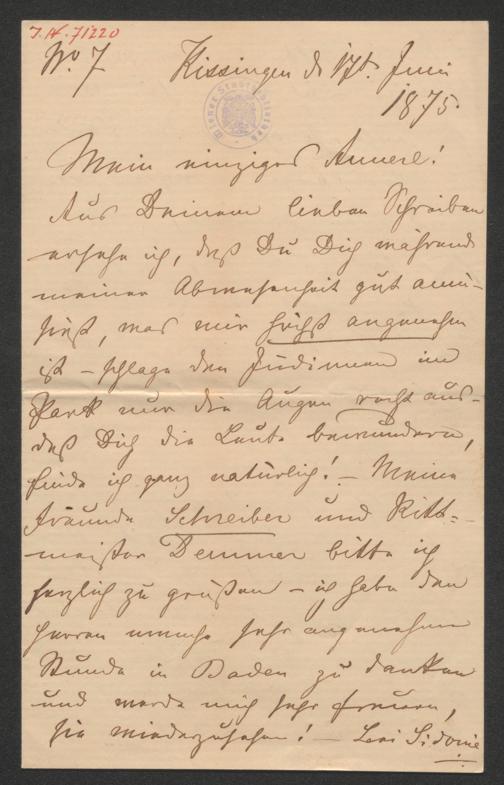 J.N. 71220
No. 7 Kissingen d. 17t. Juni
1875.
Wiener Stadtbibliothek
Mein einziges Annerl!
Aus Deinem lieben Schreiben
ersehe ich, daß Du Dich während
meiner Abwesenheit gut amü-
sirst, was mir höchst angenehm
ist – schlage den Jüdinnen im
Park nur die Augen recht aus –
daß Dich die Leute bewundern,
finde ich ganz natürlich! – Meine
Freunde Schreiber und Ritt-
meister Demmer bitte ich
herzlich zu grüßen – ich habe den
Herren manche sehr angenehme
Stunde in Baden zu danken
und werde mich sehr freuen,
sie wiederzusehen! – Bei Sidonie